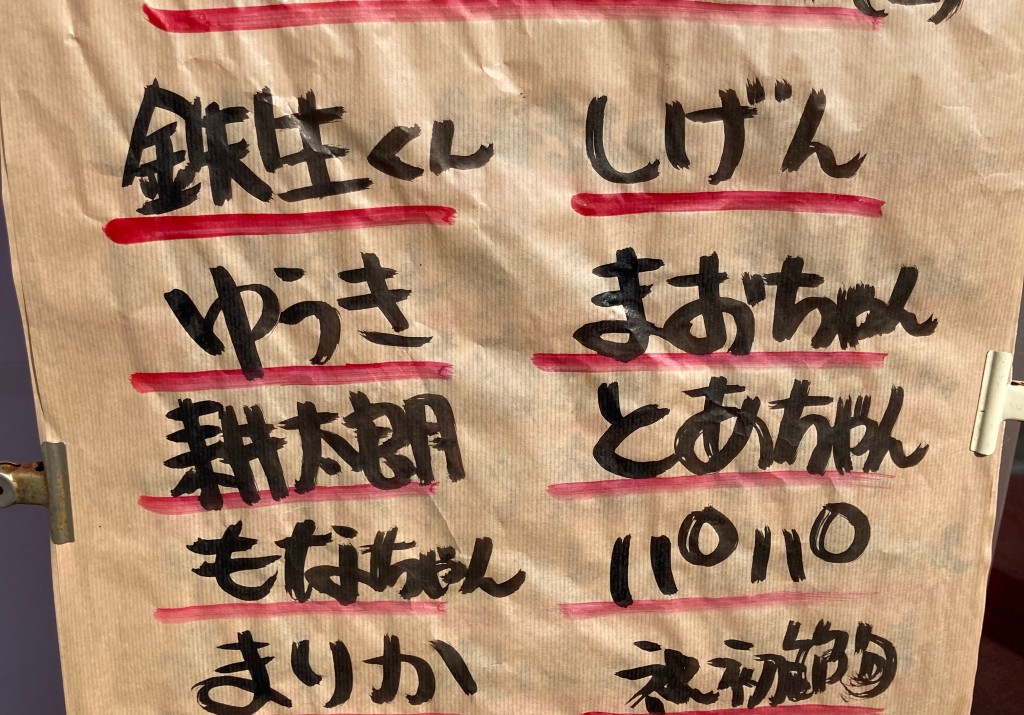 鉄生くん
しげん
ゆうき
まおちゃん
耕太朗
とあちゃん
もなちゃん
パパ
まりか
祝初節句